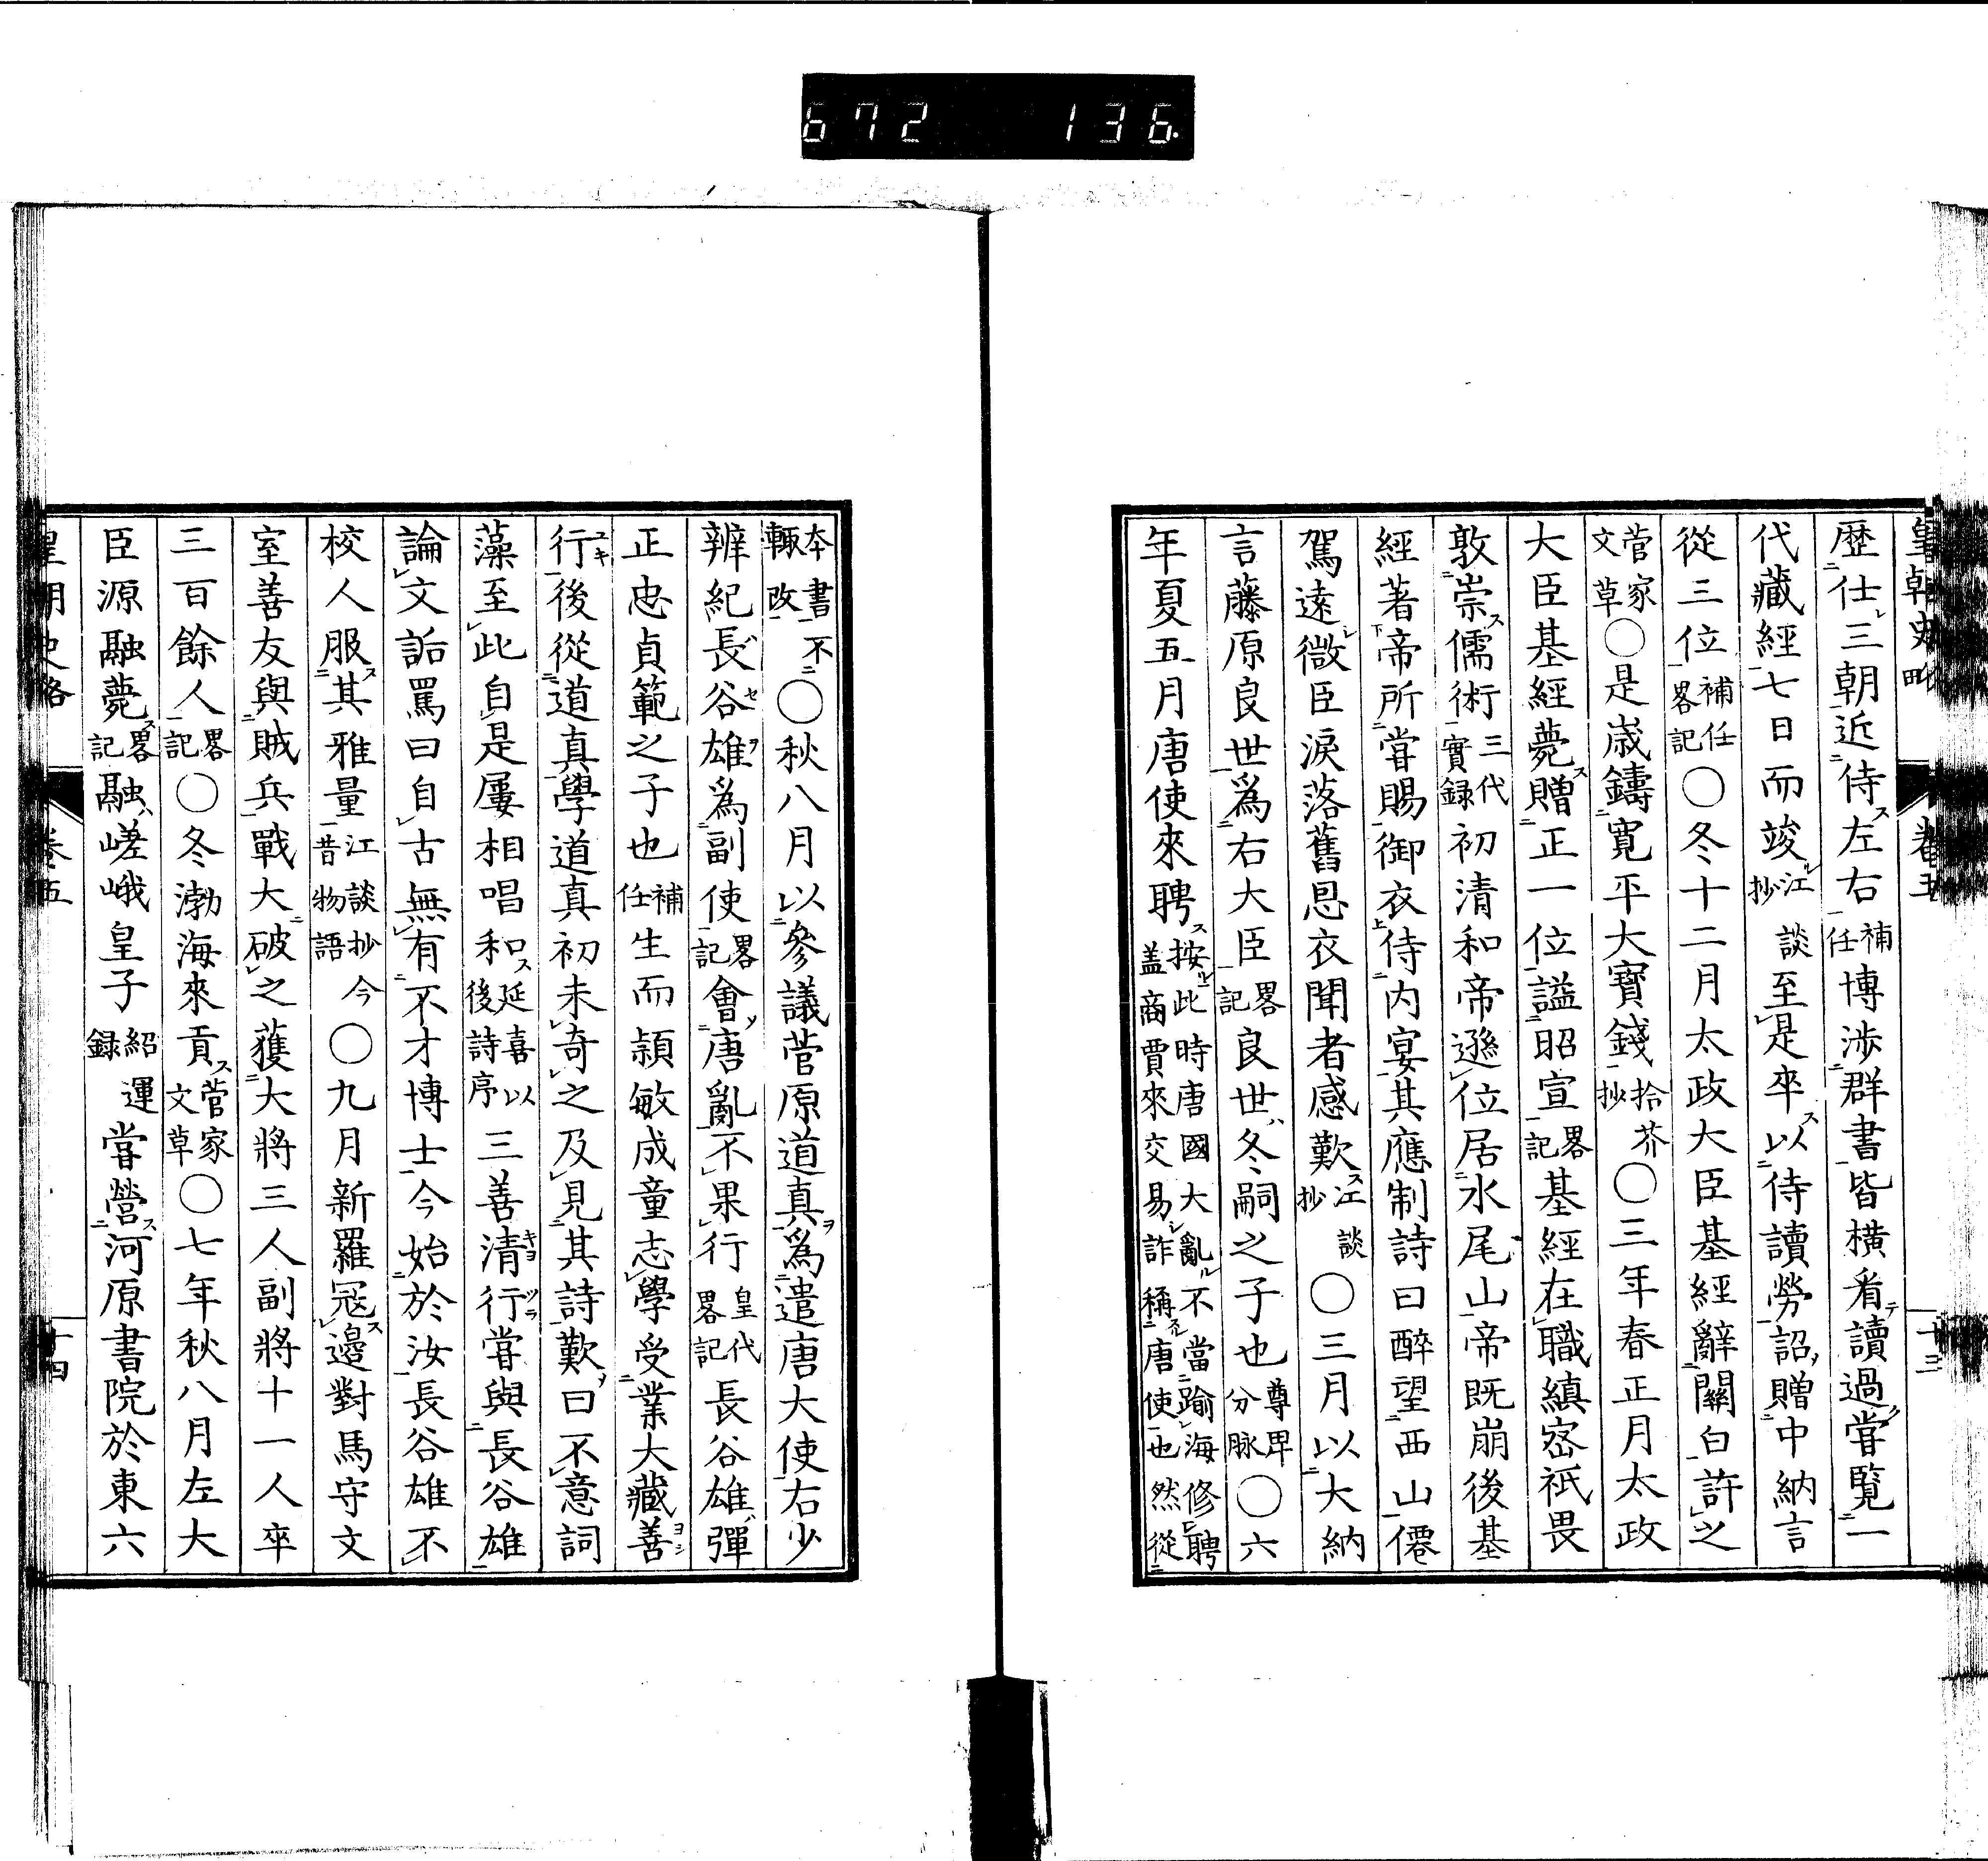 672 136
皇朝史略 卷五 十三
歷仕三朝近侍左右補任博涉群書皆橫看讀過甞覧一
代藏經七日而竣江談抄至是卒以侍讀勞詔贈中納言
從三位補任畧記〇冬十二月太政大臣基經辭關白許之
菅家文草〇是崴鑄寛平大寳錢拾芥抄〇三年春正月太政
大臣基經薨贈正一位謚昭宣畧記基經在職縝宻祇畏
敦崇儒術三代實録初清和帝遜位居水尾山帝既崩後基
經著帝所甞賜御衣侍内宴其應制詩曰醉望西山僊
駕遠微臣淚落舊恩衣聞者感歎江談抄〇三月以大納
言藤原良世爲右大臣畧記良世冬嗣之子也尊卑分脉〇六
年夏五月唐使來聘按此時唐國大亂不當踰海修聘盖商賈來交易詐稱唐使也然從
本書不輙改〇秋八月以參議菅原道真爲遣唐大使右少
辨紀長谷雄爲副使畧記會唐亂不果行皇代畧記長谷雄彈
正忠貞範之子也補任生而頴敏成童志學受業大藏善
行後從道真學道真初未奇之及見其詩歎曰不意詞
藻至此自是屢相唱和延喜以後詩序三善清行甞與長谷雄
論文詬罵曰自古無有不才博士今始於汝長谷雄不
校人服其雅量江談抄今昔物語〇九月新羅冦邊對馬守文
室善友與賊兵戰大破之獲大將三人副將十一人卒
三百餘人畧記〇冬渤海來貢菅家文草〇七年秋八月左大
臣源融薨畧記融嵯峨皇子紹運録甞營河原書院於東六
皇朝史略 卷五 十四